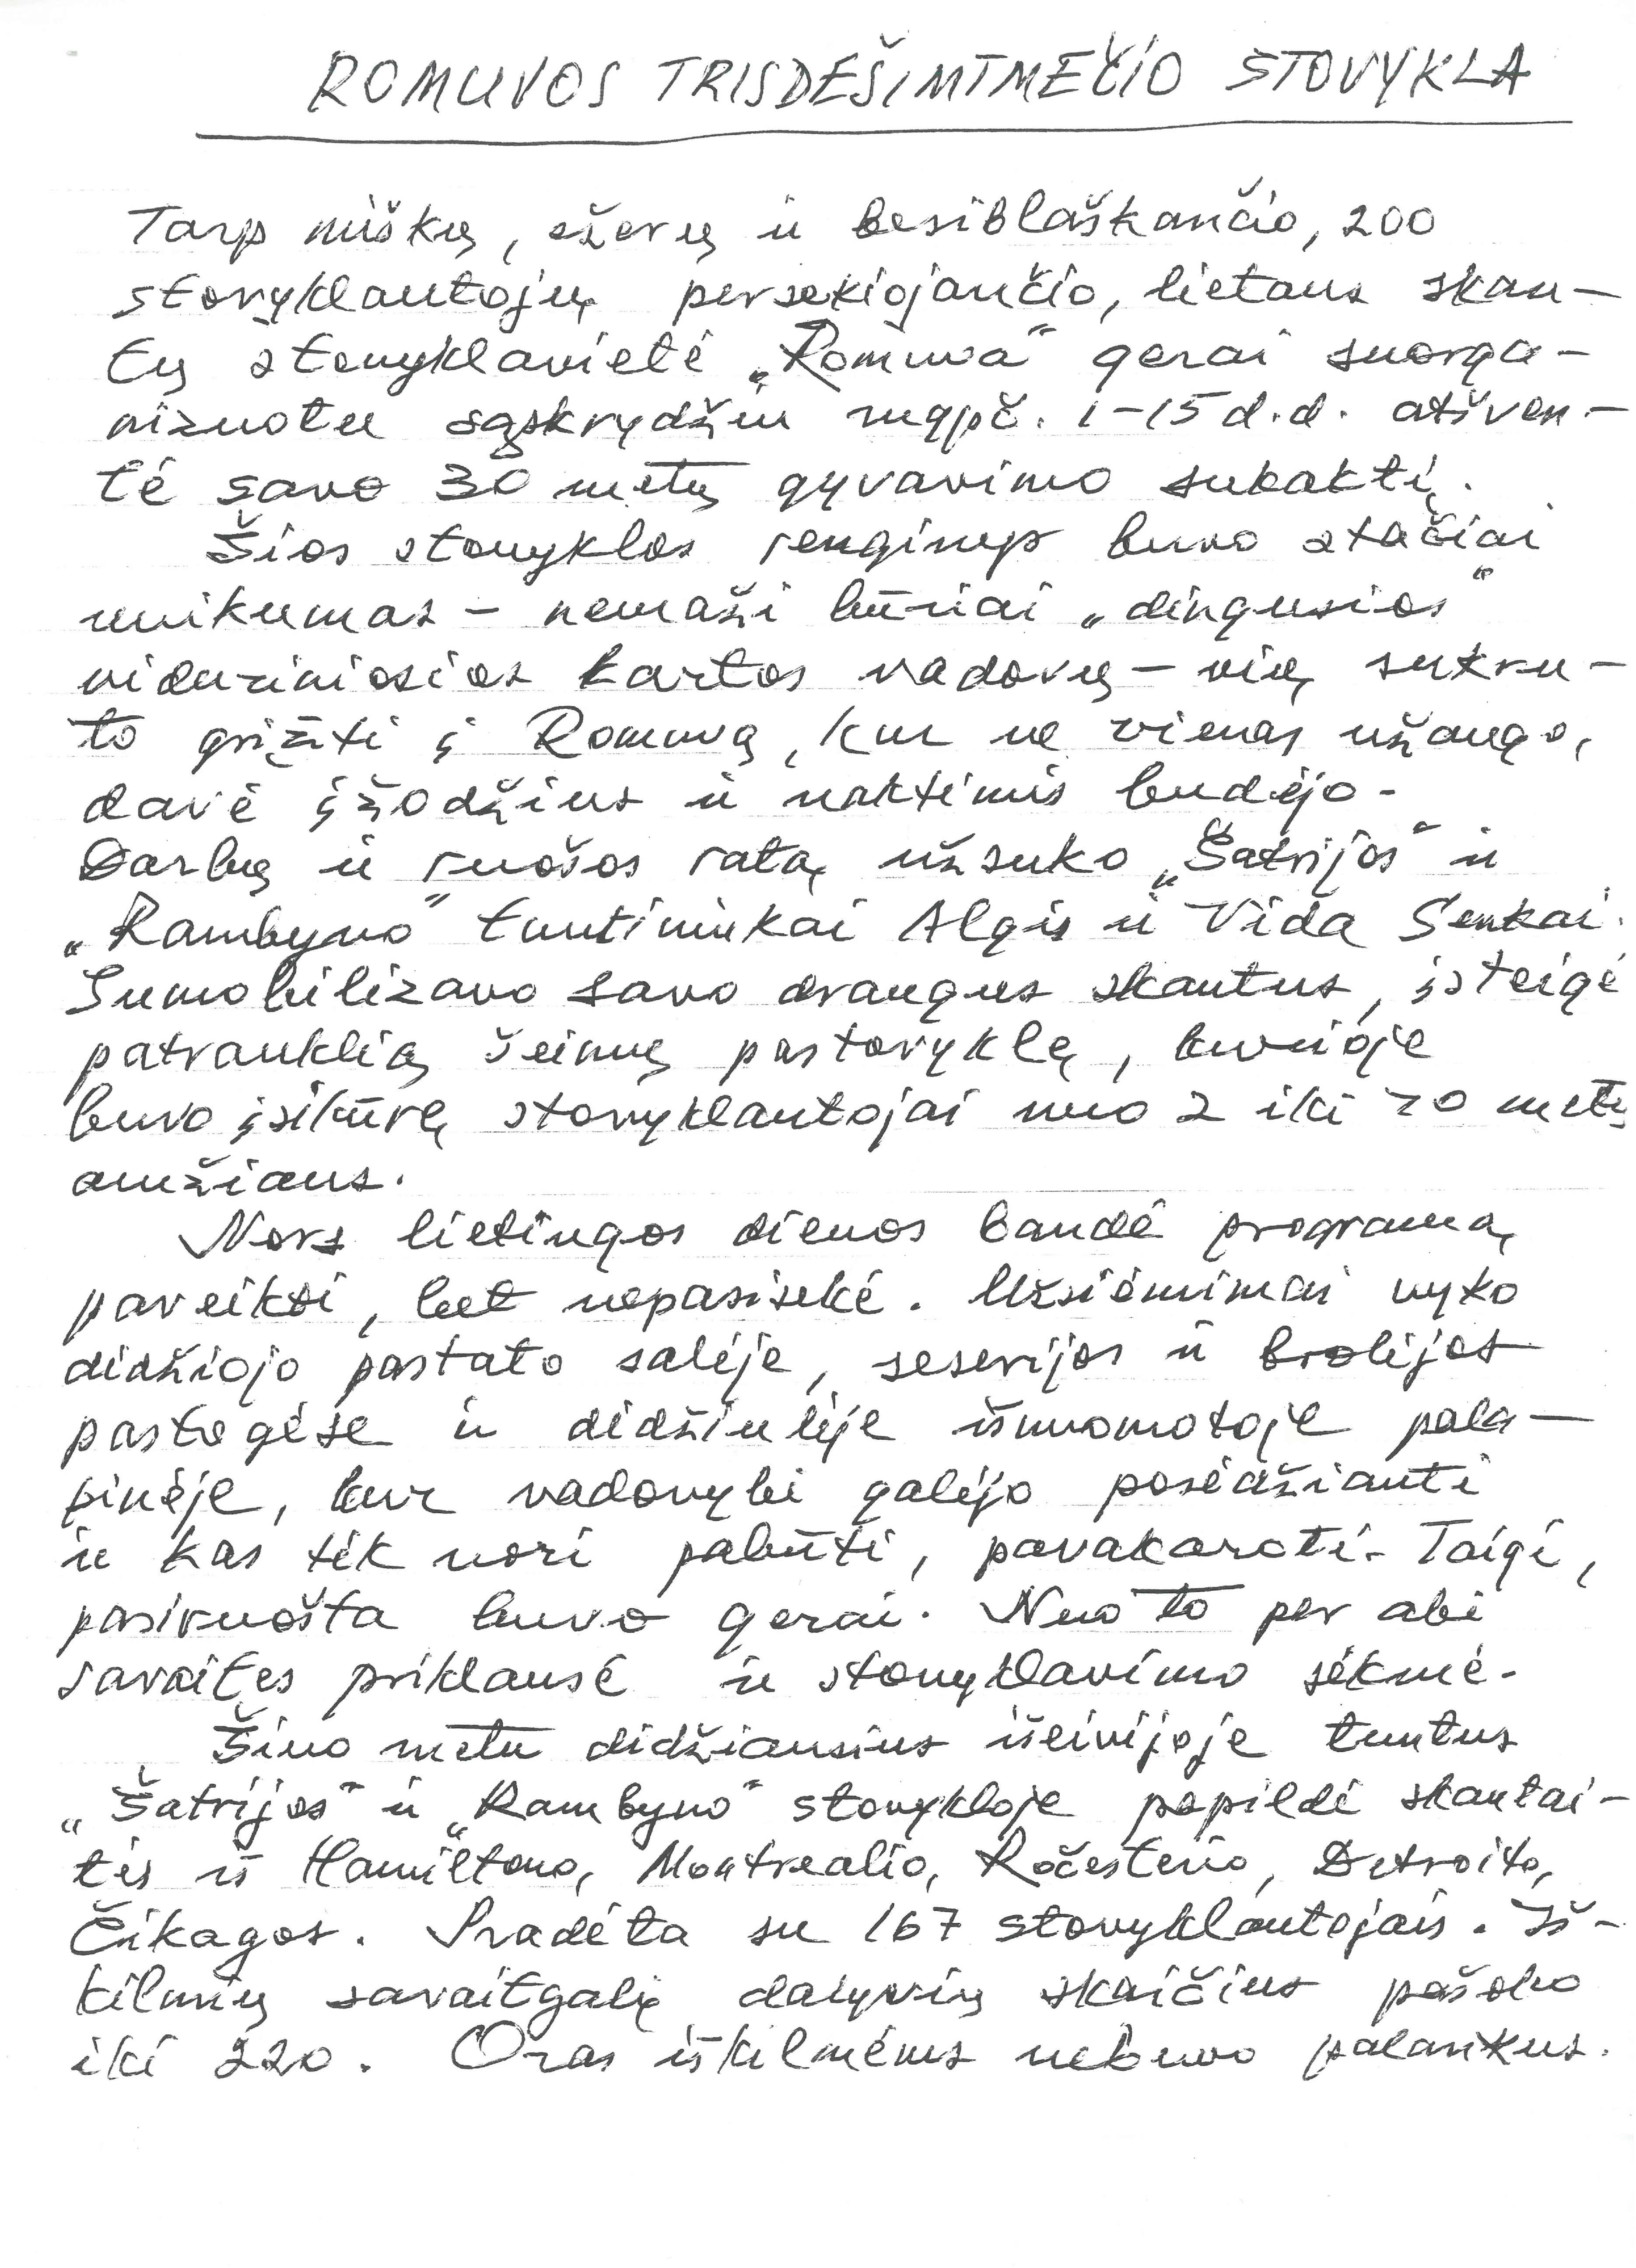 ROMUVOS TRISDEŠIMTMEČIO STOVYKLA
Tarp miškų, ežerų ir besiblaškančio, 200
stovyklautojų persekiojančio, lietaus skau-
tų stovyklavietė „Romuva“ gerai suorga-
nizuotu sąskrydžiu rugpč. 1-15 d.d. atšven-
tė savo 30 metų gyvavimo sukaktį.
Šios stovyklos renginys buvo stačiai
unikumas - nemaži būriai „dingusios“
viduriniosios kartos vadovų - vių sukru-
to grįžti į Romuvą, kur ne vienas užaugo,
davė įžodžius ir naktimis budėjo.
Darbų ir ruošos ratą užsuko „Šatrijos“ ir
„Rambyno“ tuntininkai Algis ir Vida Senkai.
Sumobilizavo savo draugus skautus, įsteigė
patrauklią šeimų pastovyklę, kurioje
buvo įsikūrę stovyklautojai nuo 2 iki 70 metų
amžiaus.
Nors lietingos dienos bandė programą
paveikti, bet nepasisekė. Užsiėmimai vyko
didžiojo pastato salėje, seserijos ir brolijos
pastogėse ir didžiulėje išnuomotoje pala-
pinėje, kur vadovybė galėjo posėdžiauti
ir kas tik nori pabūti, pavakaroti. Taigi,
pasiruošta buvo gerai. Nuo to per abi
savaites priklausė ir stovyklavimo sėkmė.
Šiuo metu didžiausius išeivijoje tuntus
„Šatrijos“ ir „Rambyno“ stovykloje papildė skautai-
tės iš Hamiltono, Montrealio, Ročesterio, Detroito,
Čikagos. Pradėta su 167 stovyklautojais. Iš-
kilmių savaitgalį dalyvių skaičius pašoko
iki 220. Oras iškilmėms nebuvo palankus.